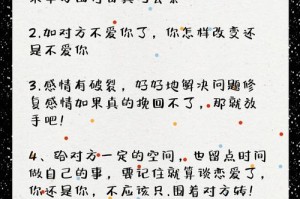 2.如对方不爱你了，你怎样改变还
是不爱你
3.感情有破裂，好好地解决问题修
复感情如果真的挽回不了，那就放
手吧！
4、给对方一定的空间，也留点时间
做自己的事，要记住就算谈恋爱了，
你还是你，不应该只.围着对方转！